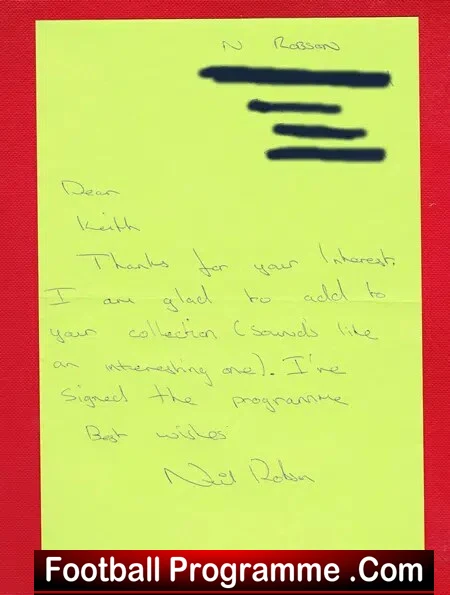 N Robson
Dear
Keith
Thanks for your Interest.
I am glad to add to
your collection (sounds like
an interesting one). I've
signed the programme
Best wishes
Neil Robson
Football Programme .Com